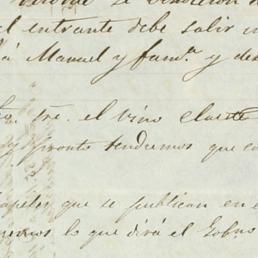 el entrante debe salir
á Manuel y fam.ª y
el vino clarete
y pronto tendremos que
papeles que se publican en
lo que dirá el Gobno